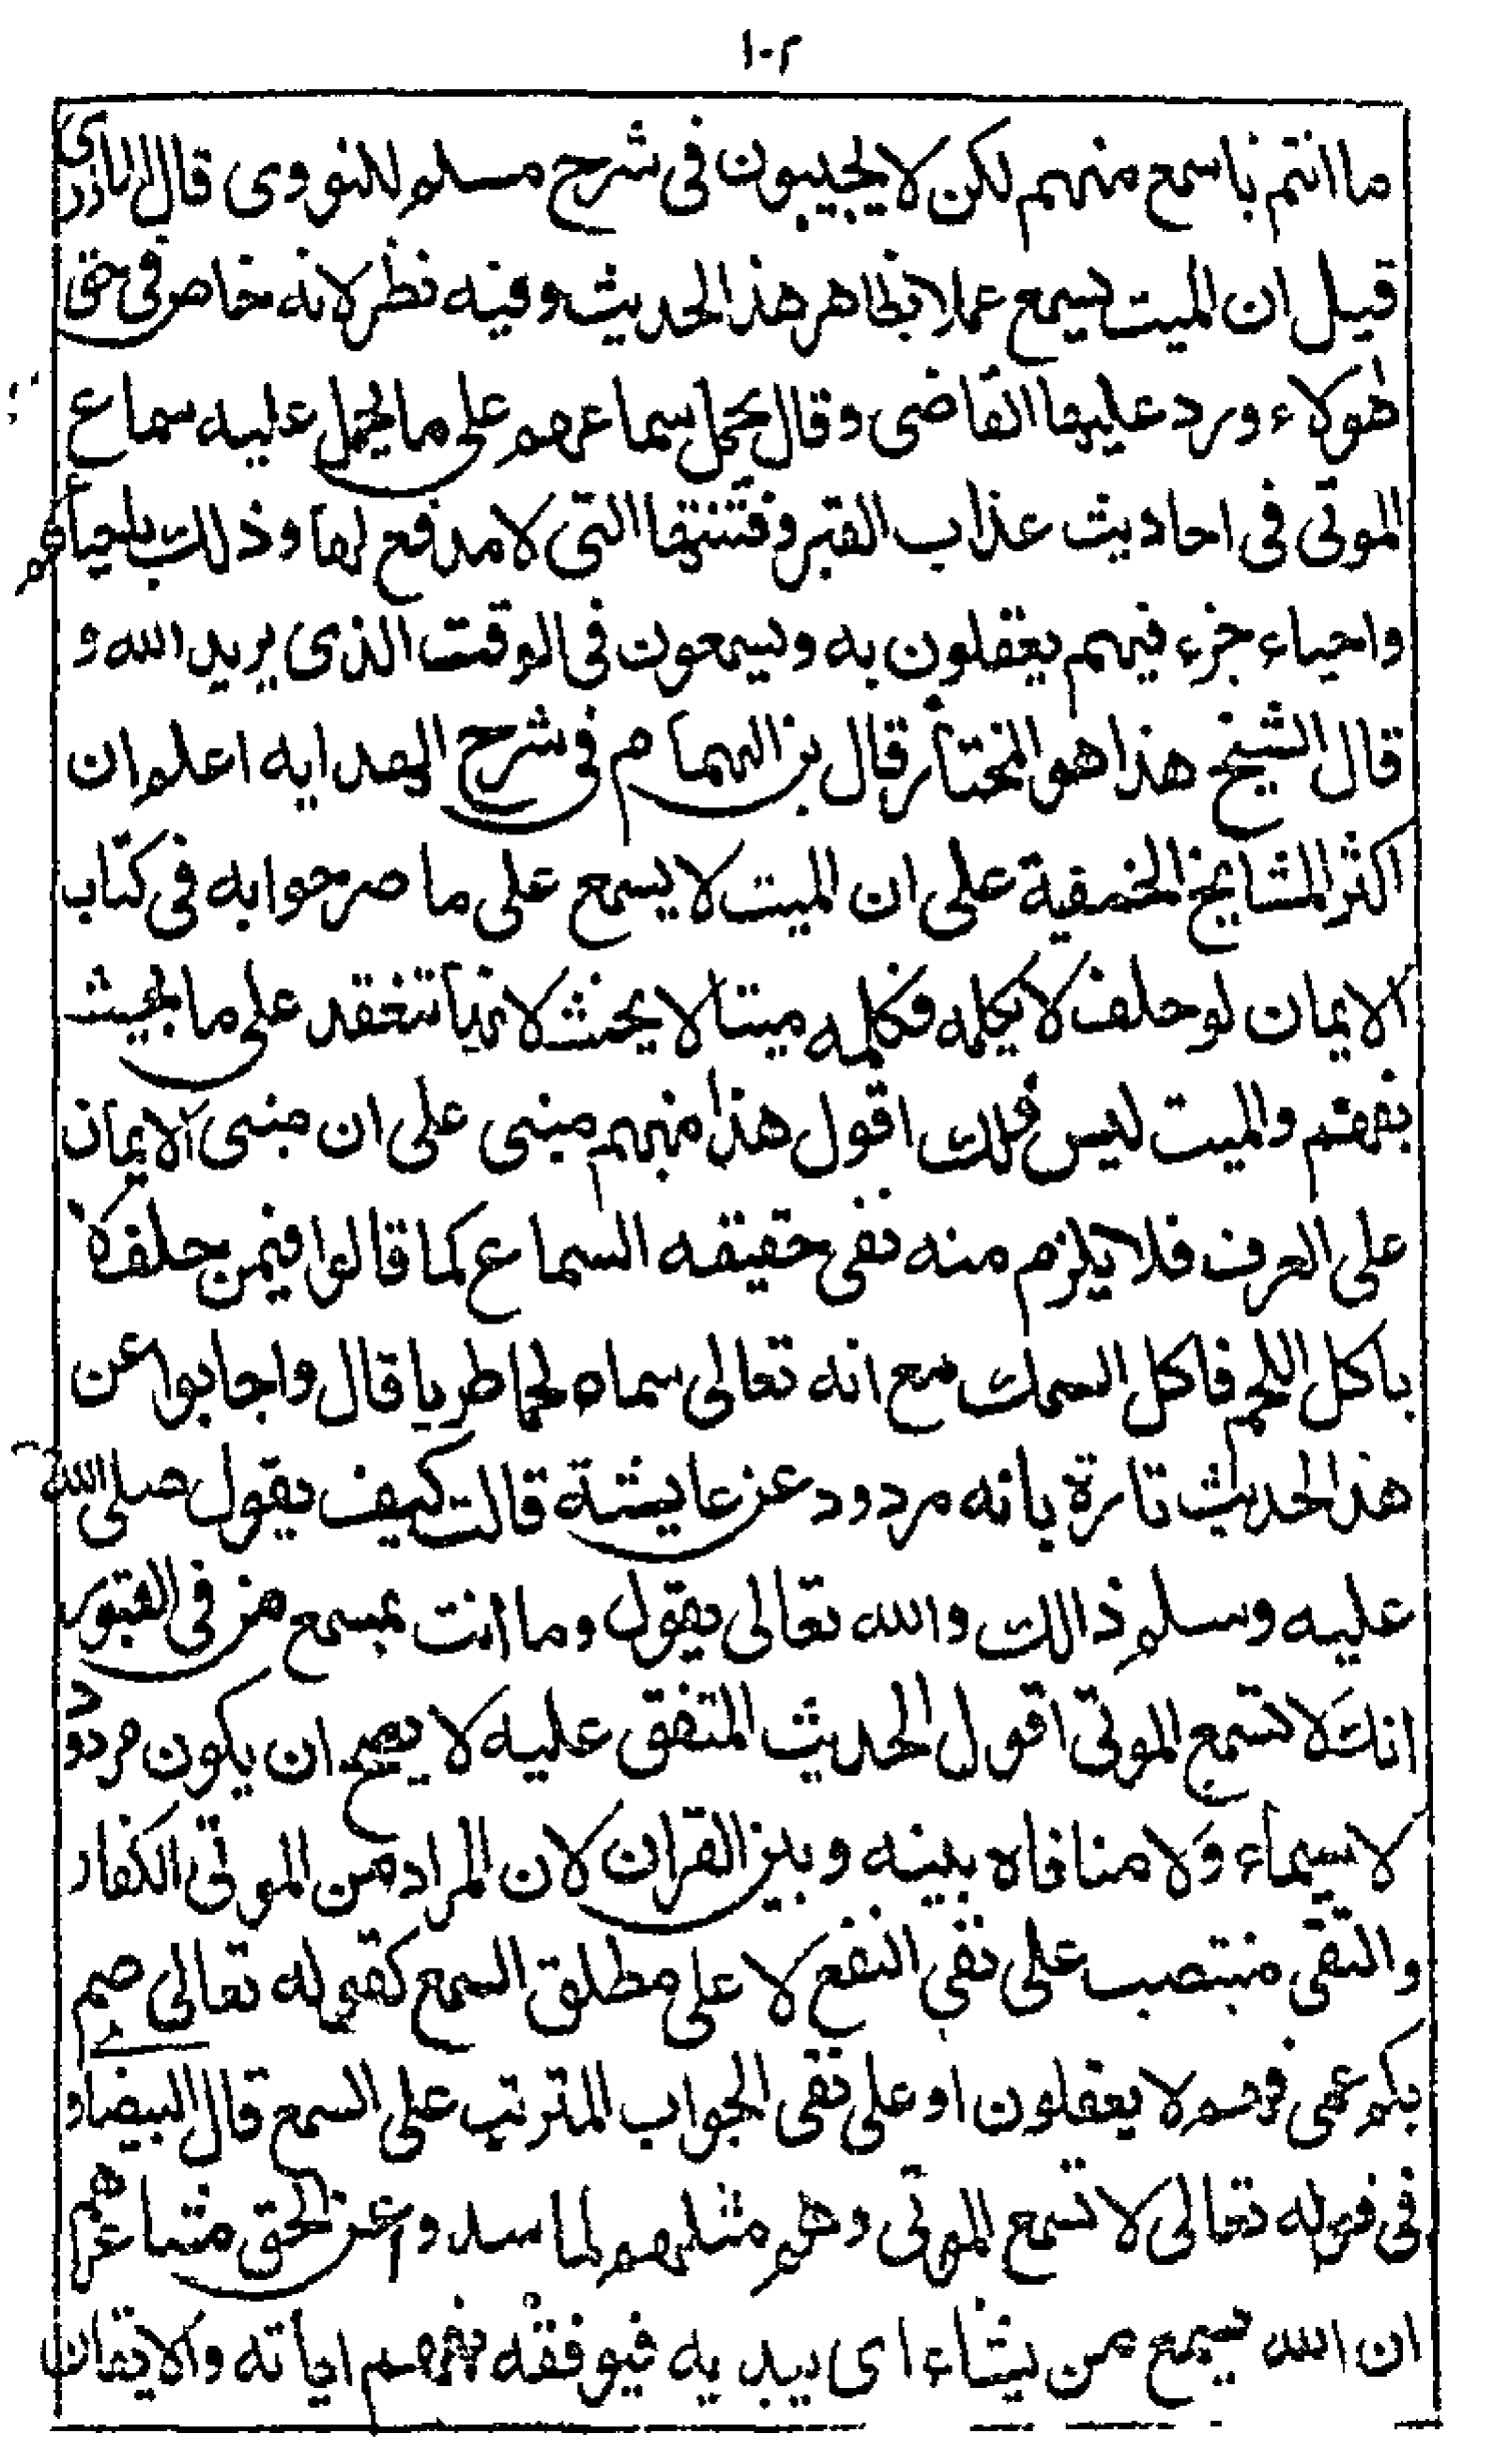 ١٠٢
ما انتم باسمع منهم لكن لا يجيبون فى شرح مسلم للنووى قال المازرى
قيل ان الميت يسمع عملا بظاهر هذا الحديث وفيه نظر لانه خاص فى حق
هولاء ورد عليها القاضى وقال يحمل سماعهم على ما يحمل عليه سماع
الموتى فى احاديث عذاب القبر وفتنتها التى لا مدفع لها وذلك باحيائهم
واحياء جزء فيهم يعقلون به ويسمعون فى الوقت الذى يريد الله و
قال الشيخ هذا هو المختار قال بن الهمام فى شرح الهدايه اعلم ان
اكثر المشايخ الحنفية على ان الميت لا يسمع على ما صرحوا به فى كتاب
الايمان لو حلف لا يكلمه فكلمه ميتا لا يحنث لانها تنعقد على ما بحيث
بفهم والميت ليس كذلك اقول هذا منهم مبنى على ان مبنى الايمان
على العرف فلا يلزم منه نفى حقيقه السماع كما قالوا فيمن حلف لا
ياكل اللحم فاكل السمك مع انه تعالى سماه لحما طريا قال واجابوا عن
هذا الحديث تارة بانه مردود عن عايشة قالت كيف يقول صلى الله
عليه وسلم ذالك والله تعالى يقول وما انت بمسمع من فى القبور
انك لا تسمع الموتى اقول الحديث المتفق عليه لا يصح ان يكون مردودا
لا سيماء ولا منافاه بينه وبين القران لان المراد من الموتى الكفار
والنفى منتصب على نفى النفع لا على مطلق السمع كقوله تعالى صم
بكم عمى فهم لا يعقلون او على نفى الجواب المترتب على السمع قال البيضاو
فى قوله تعالى لا تسمع الموتى وهم مثلهم لما سدوا عن الحق مشاعرهم
ان الله يسمع من يشاء اى يهديه فيوفقه لفهم اياته والايقان